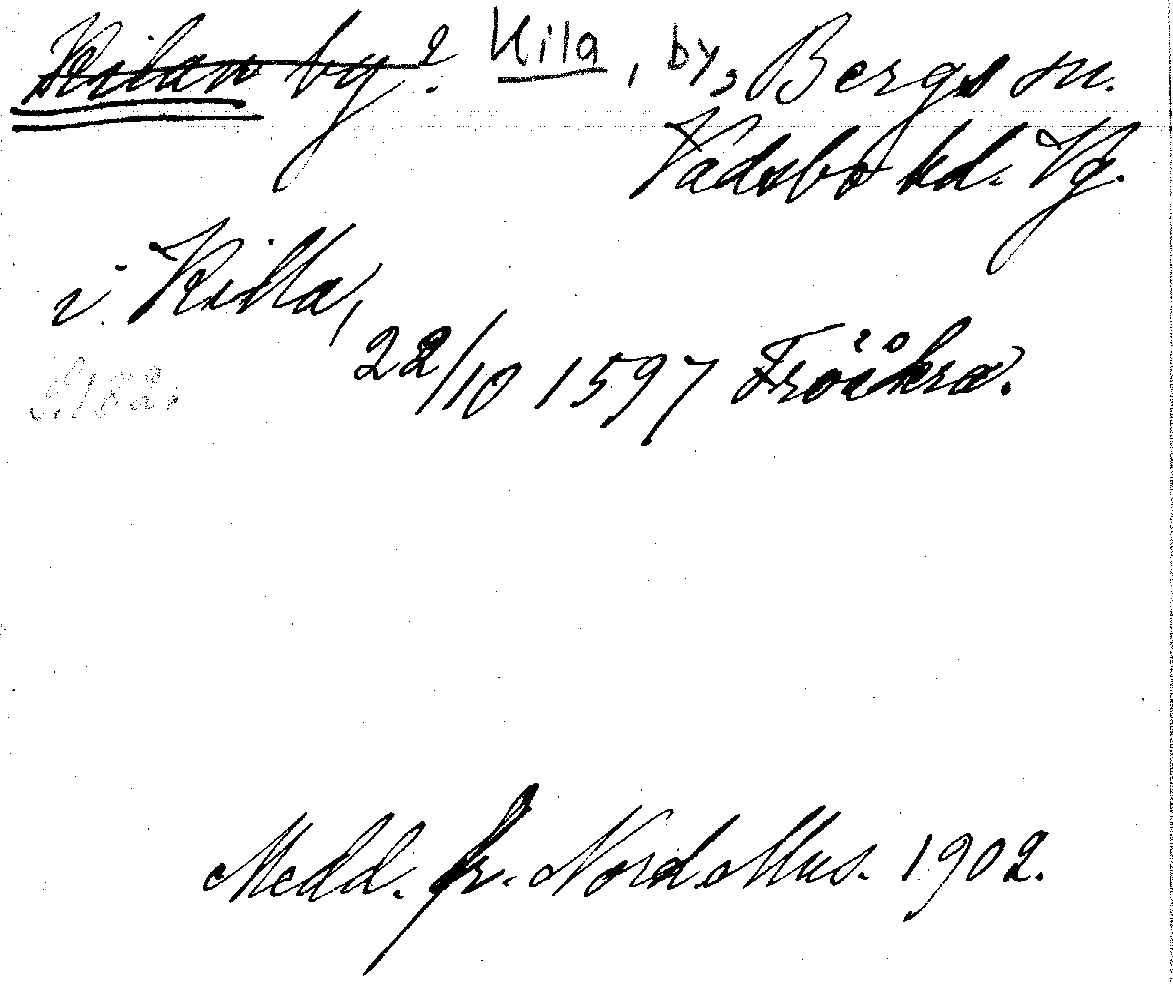 Kilan by? Kila, by, Bergs sn.
Vadsbo hd. Vg.
i Killa,
22/10 1597 Fröåkra.
S. 182.
Medd. fr. Nord. Mus. 1902.